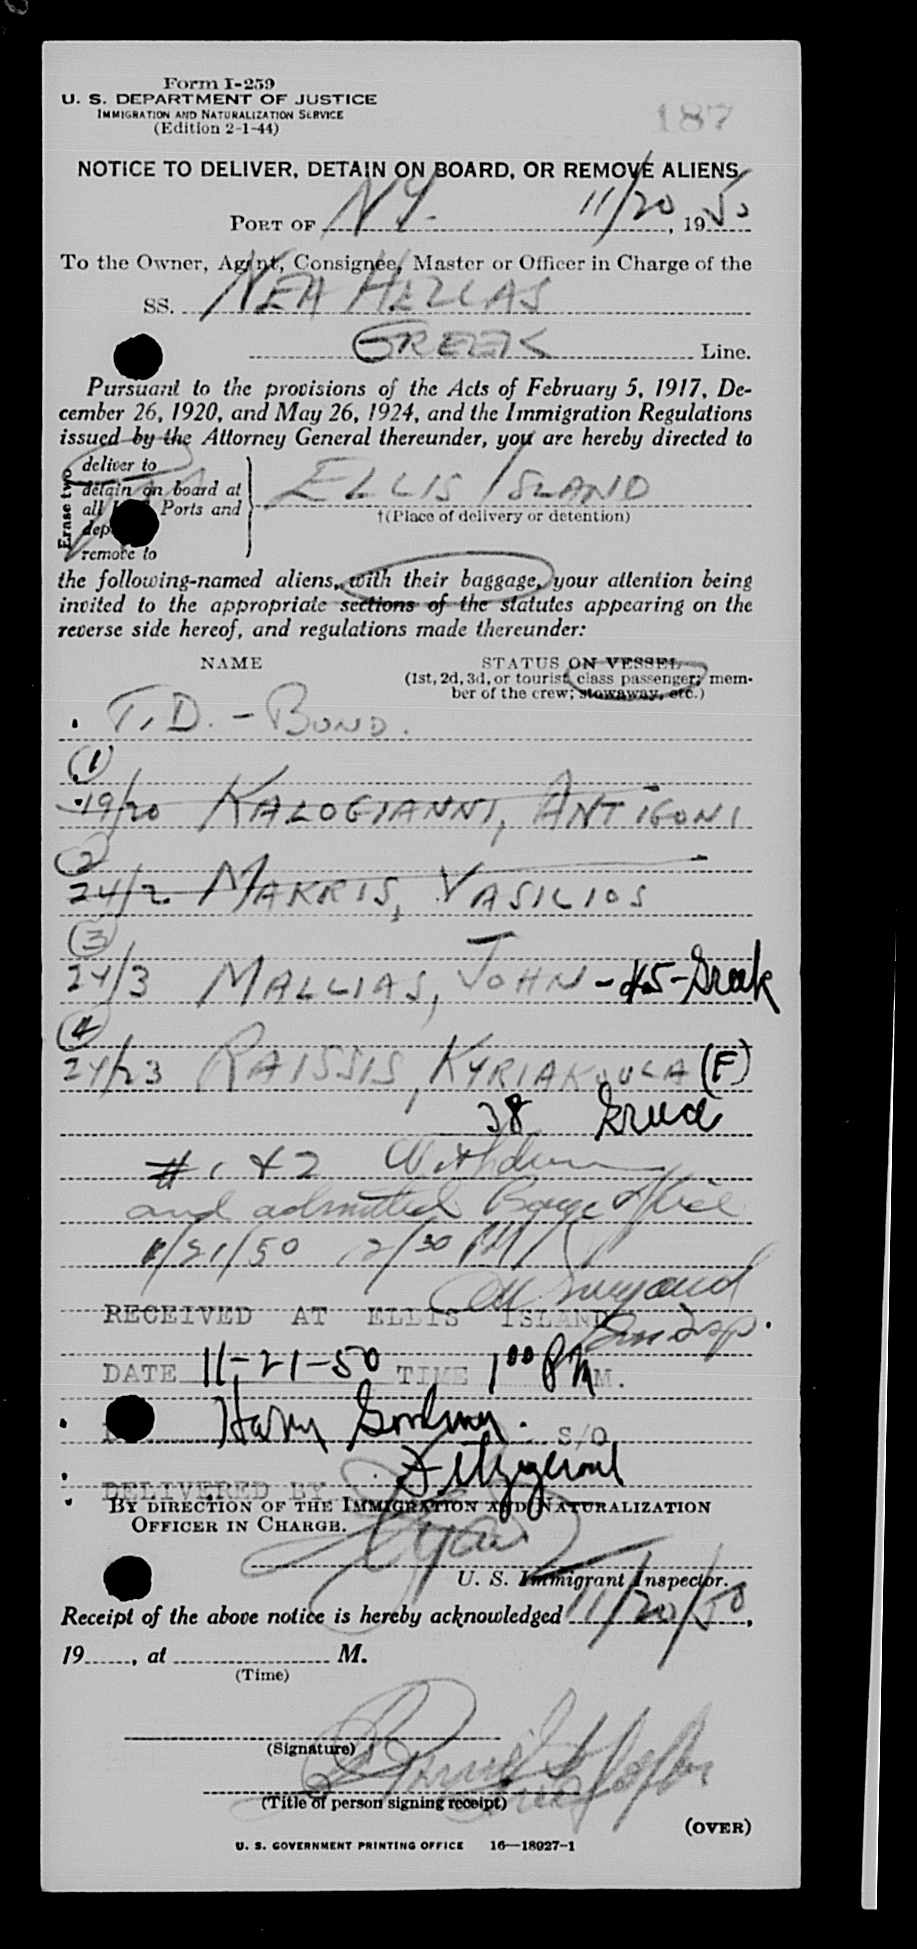 Form I-259
U. S. DEPARTMENT OF JUSTICE
IMMIGRATION AND NATURALIZATION SERVICE
(Edition 2-1-44)
187
NOTICE TO DELIVER, DETAIN ON BOARD, OR REMOVE ALIENS
PORT OF NY. 11/20, 1950
To the Owner, Agent, Consignee, Master or Officer in Charge of the
SS. NEA HELLAS
GREEK Line.
Pursuant to the provisions of the Acts of February 5, 1917, De-
cember 26, 1920, and May 26, 1924, and the Immigration Regulations
issued by the Attorney General thereunder, you are hereby directed to
Erase two
deliver to
detain on board at
all Ports and
remove to
ELLIS ISLAND
†(Place of delivery or detention)
the following-named aliens, with their baggage, your attention being
invited to the appropriate sections of the statutes appearing on the
reverse side hereof, and regulations made thereunder:
NAME STATUS ON VESSEL
(1st, 2d, 3d, or tourist class passenger; mem-
ber of the crew; stowaway, etc.)
T.D. - BOND.
(1)
19/20 KALOGIANNI, ANTIGONI
(2)
24/2 MAKRIS, VASILIOS
(3)
24/3 MALLIAS, JOHN - 45 - Greek
(4)
24/23 RAISSIS, KYRIAKOULA (F)
38 Greek
# 1 & 2 Withdrawn
and admitted Barge Office
11/21/50 12/30 PM
RECEIVED AT ELLIS ISLAND
DATE 11-21-50 TIME 1 00 PM M.
Harry S/O
DELIVERED BY Fitzgerald
BY DIRECTION OF THE IMMIGRATION AND NATURALIZATION
OFFICER IN CHARGE.
U. S. Immigrant Inspector.
Receipt of the above notice is hereby acknowledged 11/20/50,
19......, at M.
(Time)
(Signature)
(Title of person signing receipt)
(OVER)
U. S. GOVERNMENT PRINTING OFFICE 16—18027-1